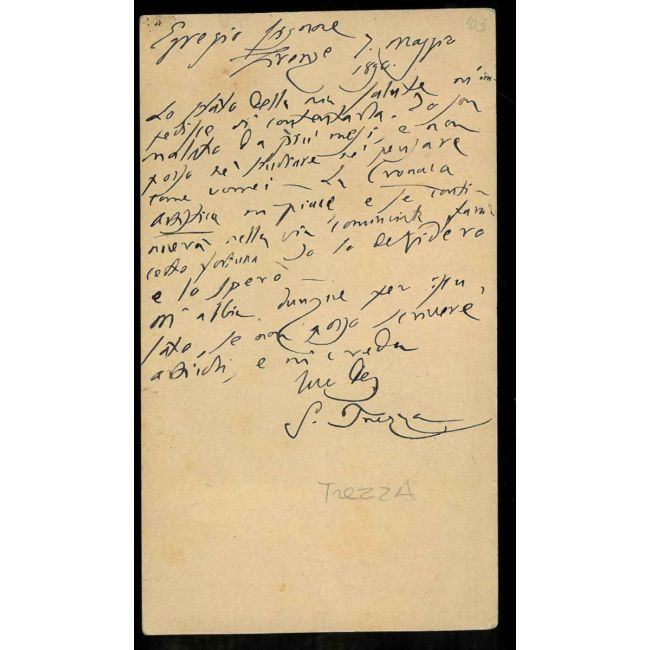 '03
Egregio Signore
Firenze 7. Maggio
1890.
Lo stato della mia salute m'im-
pedisce di contentarla. Io son
malato da più mesi e non
posso nè studiare nè pensare
come vorrei — La Cronaca
Artistica mi piace e se conti-
nuerà nella via cominciata farà
certo fortuna Io lo desidero
e lo spero —
M'abbia dunque per iscu-
sato, se non posso scrivere
articoli, e mi creda
Suo
G. Trezza
TREZZA